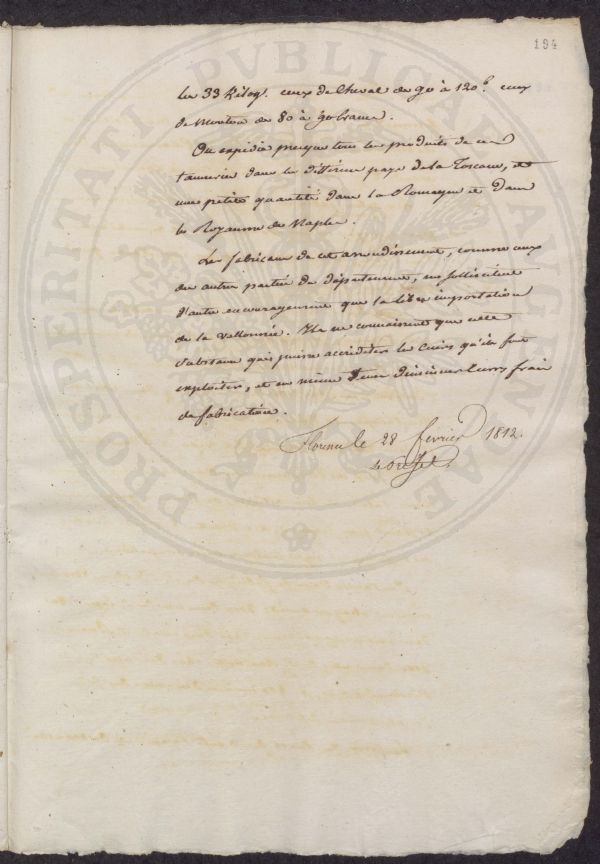 194
les 33 Kilog. ceux de Cheval de 90 à 120 f. ceux
de Mouton de 80 à 90 francs.
On expédie presque tous les produits de ces
tanneries dans les différens pays de la Toscane, et
une petite quantité dans la Romagne et dans
le Royaume de Naples.
Les fabricans de cet arrondissement, comme ceux
des autres parties du département, ne sollicitent
d'autre encouragement que la libre importation
de la Vallonnée. Ils ne connaissent que cette
substance qui puisse accréditer les Cuirs qu'ils font
exploiter, et en même tems diminuer leurs frais
de fabrication.
Florence le 28 février 1812.
Le Préfet
PROSPERITATI PUBLICAE AUGENDAE